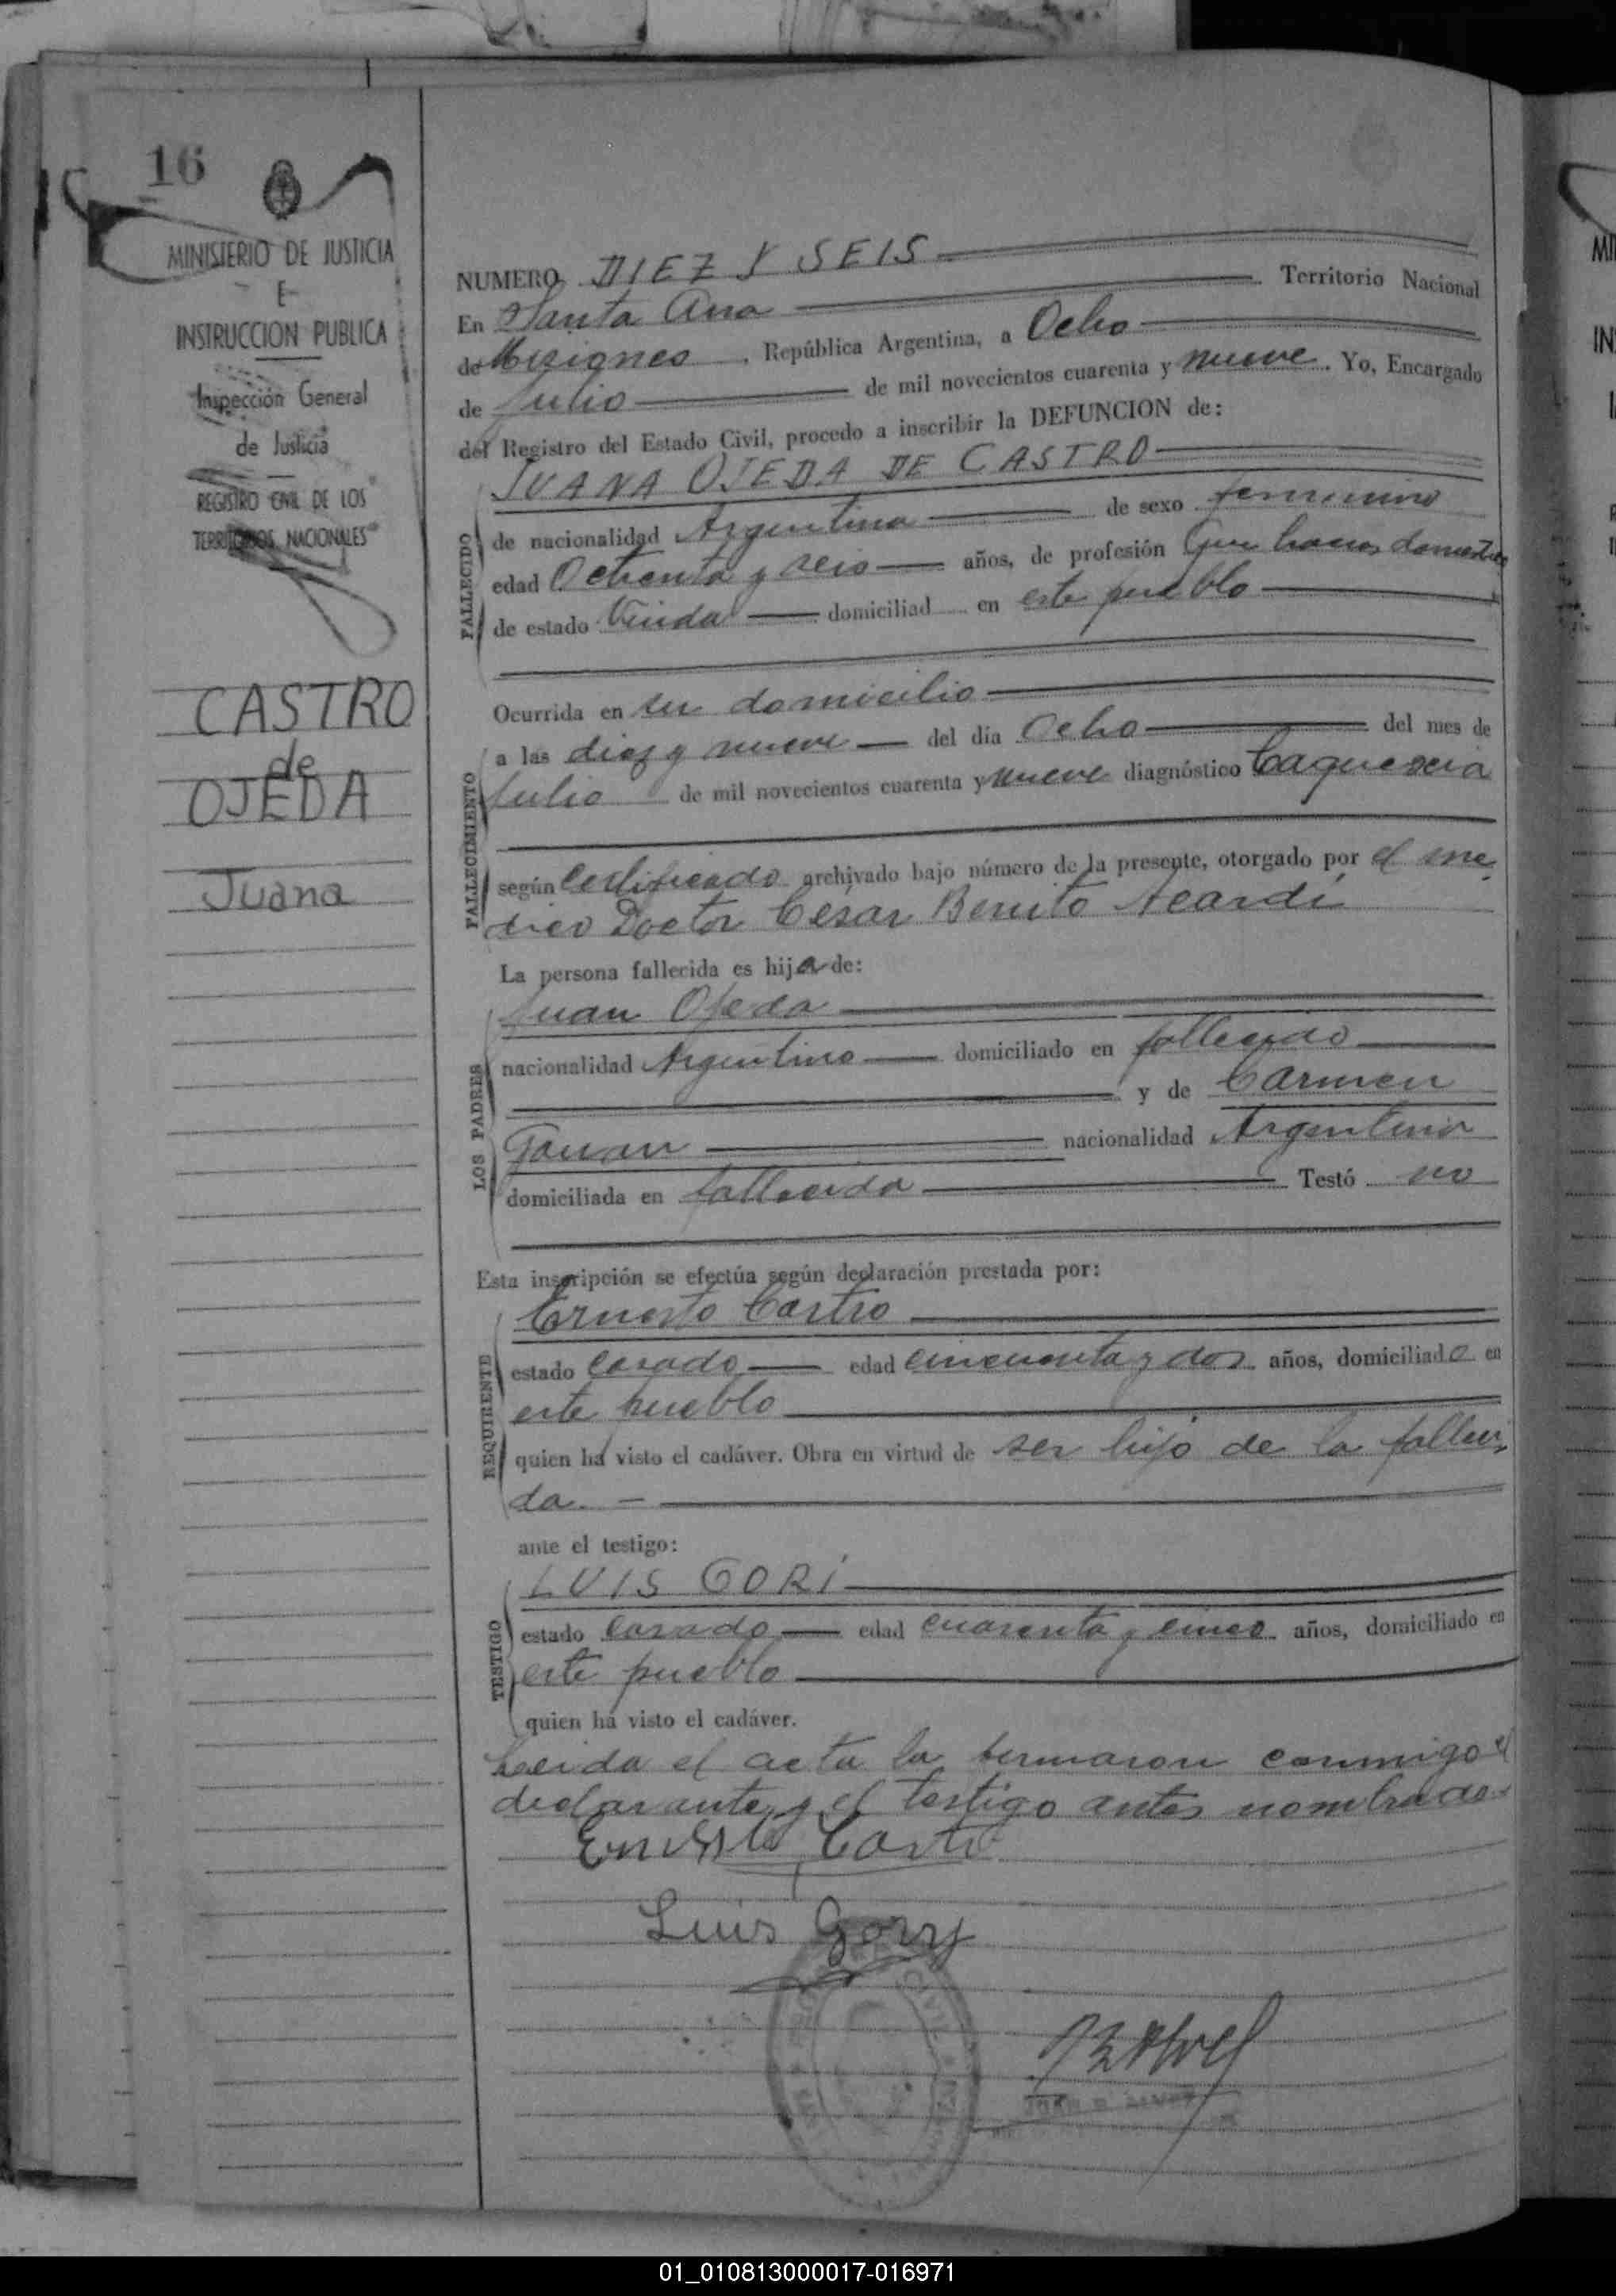 16
MINISTERIO DE JUSTICIA
E
INSTRUCCION PUBLICA
Inspección General
de Justicia
REGISTRO CIVIL DE LOS
TERRITORIOS NACIONALES
CASTRO
de
OJEDA
Juana
NUMERO DIEZ Y SEIS
En Santa Ana Territorio Nacional
de Misiones, República Argentina, a Ocho
de Julio de mil novecientos cuarenta y nueve. Yo, Encargado
del Registro del Estado Civil, procedo a inscribir la DEFUNCION de:
FALLECIDO
JUANA OJEDA DE CASTRO
de nacionalidad Argentina de sexo femenino
edad Ochenta y seis años, de profesión
de estado Viuda domiciliad en este pueblo
Ocurrida en su domicilio
FALLECIMIENTO
a las diez y nueve del día Ocho del mes de
Julio de mil novecientos cuarenta y nueve diagnóstico Caquexia
según Certificado archivado bajo número de la presente, otorgado por el mé
dico Doctor César Benito Acardi
La persona fallecida es hija de:
LOS PADRES
Juan Ojeda
nacionalidad Argentino domiciliado en fallecido
y de Carmen
nacionalidad Argentina
domiciliada en fallecida Testó no
Esta inscripción se efectúa según declaración prestada por:
REQUIRENTE
Ernesto Castro
estado casado edad cincuenta y dos años, domiciliado en
este pueblo
quien ha visto el cadáver. Obra en virtud de ser hijo de la falleci
da. -
ante el testigo:
TESTIGO
LUIS GORI
estado casado edad cuarenta y cinco años, domiciliado en
este pueblo
quien ha visto el cadáver.
Leida el acta la firmaron conmigo el
declarante y el testigo antes nombrados
Ernesto Castro
Luis Gory
01_010813000017-016971